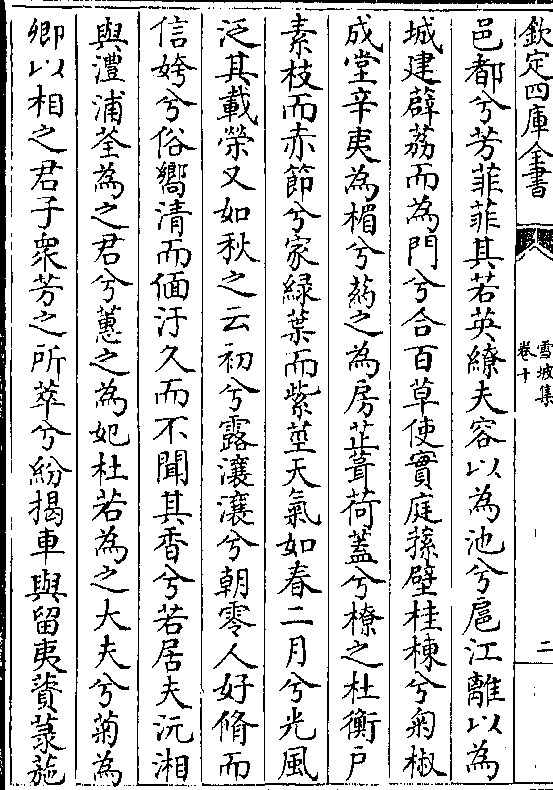 欽定四庫全書
雪坡集
卷十
二
邑都兮芳菲菲其若英繚夫容以為池兮扈江離以為
城建薜荔而為門兮合百草使實庭蓀壁桂棟兮匊椒
成堂辛夷為楣兮葯之為房芷葺荷蓋兮橑之杜衡戶
素枝而赤節兮家綠葉而紫莖天氣如春二月兮光風
泛其載榮又如秋之云初兮露瀼瀼兮朝零人好脩而
信姱兮俗嚮清而偭汙久而不聞其香兮若居夫沅湘
與澧浦荃為之君兮蕙之為妃杜若為之大夫兮菊為
卿以相之君子衆芳之所萃兮紛揭車與留夷薋菉葹